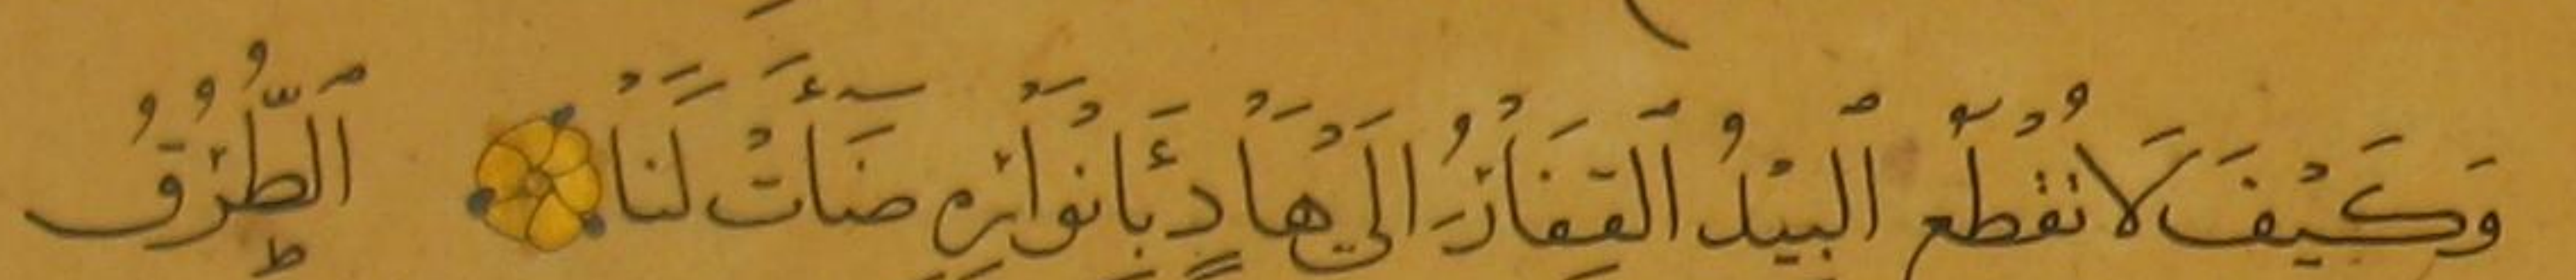 وَكَيْفَ لَا تُقْطَعُ الْبِيْدُ الْقِفَارُ اِلَى هَادٍ بِأَنْوَارِهِ ضَآءَتْ لَنَا الطُّرُقُ